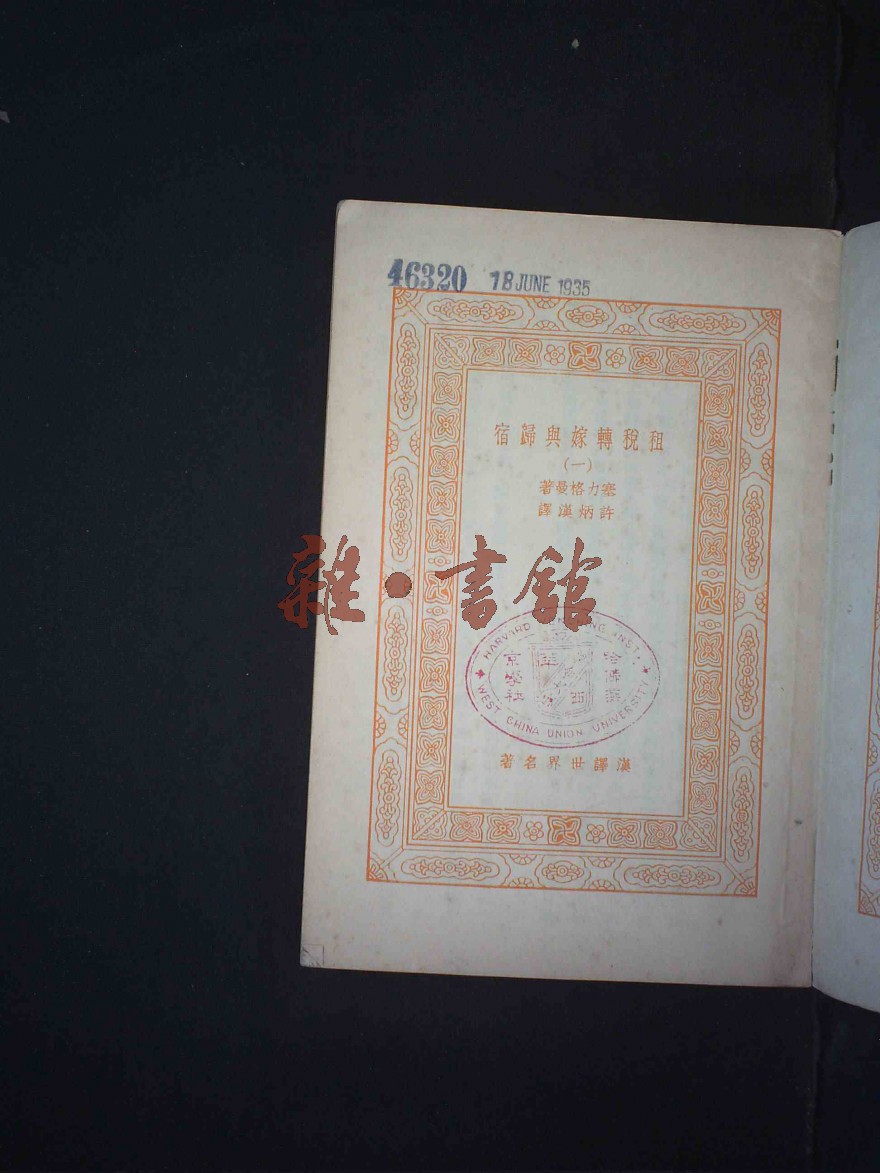 46320 18 JUNE 1935
租稅轉嫁與歸宿
(一)
塞力格曼著
許炳漢譯
雜·書館
HARVARD INST.
哈佛燕京學社
WEST CHINA UNION UNIVERSITY
漢譯世界名著